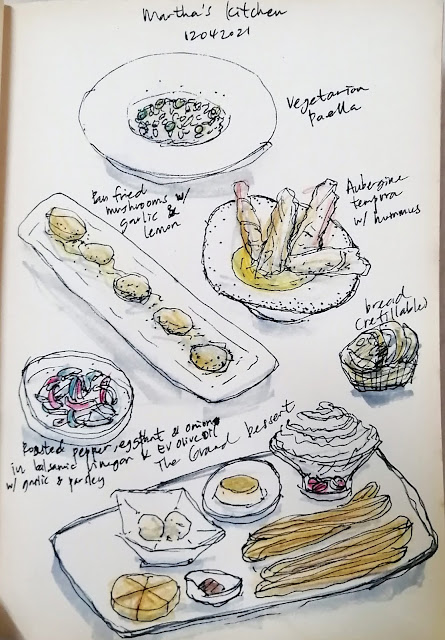 Martha's Kitchen
12042021
Vegetarian
Paella
Pan fried
mushrooms w/
garlic &
lemon
Aubergine
tempura
w/ hummus
bread
(refillable)
Roasted pepper, eggplant & onion
in balsamic vinegar & EV olive oil
w/ garlic & parsley
The Grand Dessert